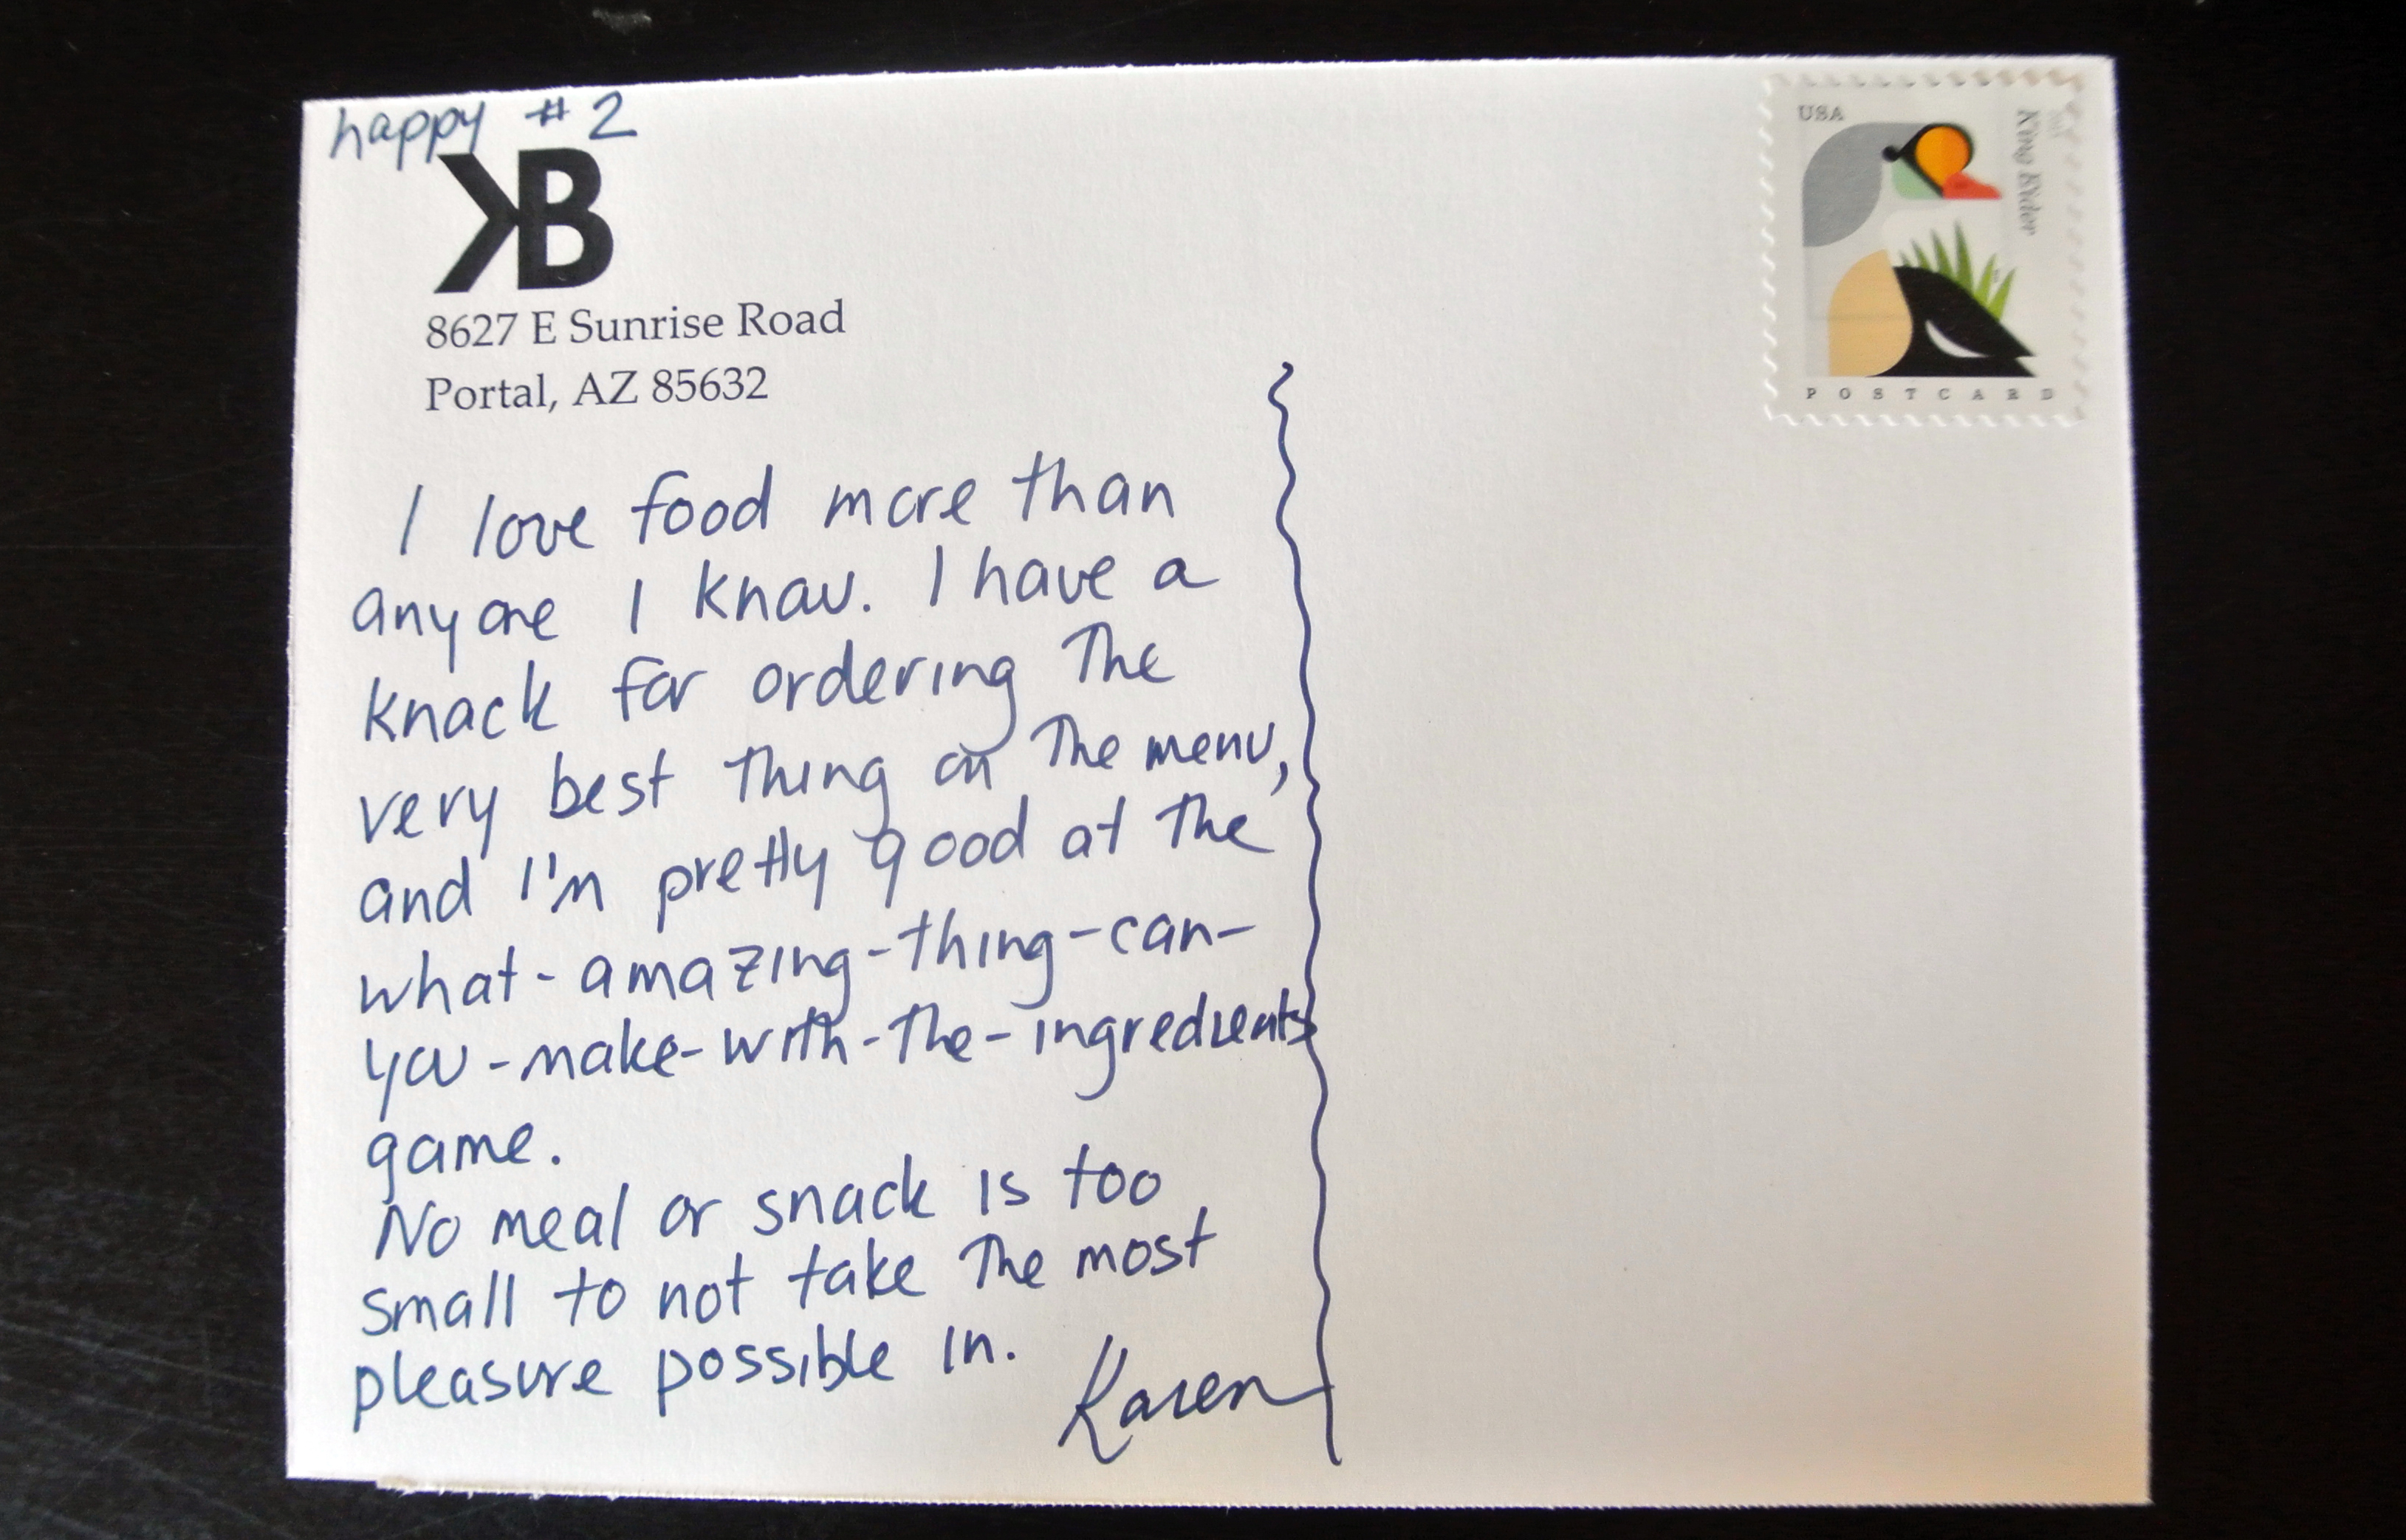 happy #2
KB
8627 E Sunrise Road
Portal, AZ 85632
USA
King Eider
POSTCARD
I love food more than
anyone I know. I have a
knack for ordering the
very best thing on the menu,
and I'm pretty good at the
what-amazing-thing-can-
you-make-with-the-ingredients
game.
No meal or snack is too
small to not take the most
pleasure possible in.
Karen